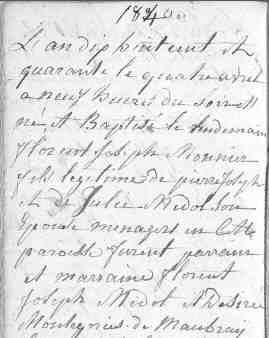 1840
L'an dix huit cent et
quarante le quatre avril
a neuf heures du soir est
né et Baptisé le lendemain
florent Joseph Monnier
fils legitime de pierre Joseph
et de Julie Medot son
Epouse menagers en cette
paroisse furent parrain
et marraine florent
Joseph Medot et Desire
de Maubray